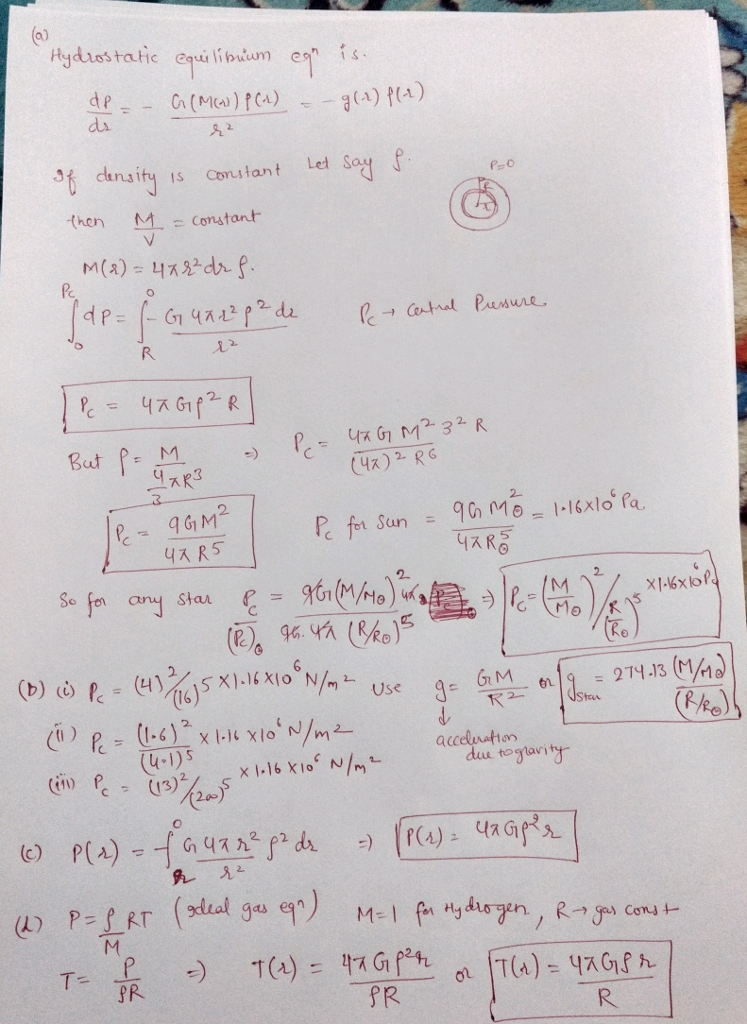 (a)
Hydrostatic equilibrium eqn is.
dp/dr = - G(M(r))ρ(r)/r² = - g(r) ρ(r)
If density is constant Let say ρ.
P=0
R
r
then M/V = constant
M(r) = 4πr²dr ρ.
∫₀^Pc dP = ∫_R^0 - G4πr²ρ²dr/r² Pc → Central Pressure
Pc = 4πGρ²R
But ρ = M/(4/3 πR³) ⇒ Pc = 4πG M² 3² R/((4π)² R⁶)
Pc = 9GM²/4πR⁵ Pc for Sun = 9GM⊙²/4πR⊙⁵ = 1.16x10⁶ Pa
So for any star Pc/(Pc)⊙ = 9G(M/M⊙)² 4π/9G.4π (R/R⊙)⁵ ⇒ Pc = (M/M⊙)²/(R/R⊙)⁵ x1.16x10⁶Pa
(b) (i) Pc = (4)²/(16)⁵ X1.16X10⁶ N/m² Use g = GM/R² or gstar = 274.13 (M/M⊙)/(R/R⊙)
(ii) Pc = (1.6)²/(4.1)⁵ x 1.16 x10⁶ N/m² ↓ acceleration due to gravity
(iii) Pc = (13)²/(200)⁵ x 1.16 X10⁶ N/m²
(c) P(r) = -∫_r^0 G4πr² ρ² dr/r² ⇒ P(r) = 4πGρ²r
(d) P = ρ/M RT (ideal gas eqn) M=1 for Hydrogen, R → gas const
T = P/ρR ⇒ T(r) = 4πGρ²r/ρR or T(r) = 4πGρr/R